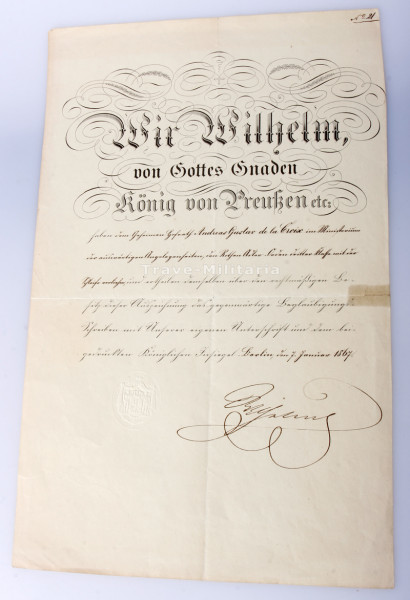 No 21
Wir Wilhelm,
von Gottes Gnaden
König von Preußen etc:
haben dem Geheimen Hofrath Andreas Gustav de la Croix im Ministerium
der auswärtigen Angelegenheiten, den Rothen Adler Orden dritter Klasse mit der
Schleife verliehen und ertheilen demselben über den rechtmäßigen Be-
sitz dieser Auszeichnung das gegenwärtige Beglaubigungs-
Schreiben mit Unserer eigenen Unterschrift und dem bei-
gedruckten Königlichen Insiegel. Berlin, den 7. Januar 1867.
Trave-Militaria
Wilhelm